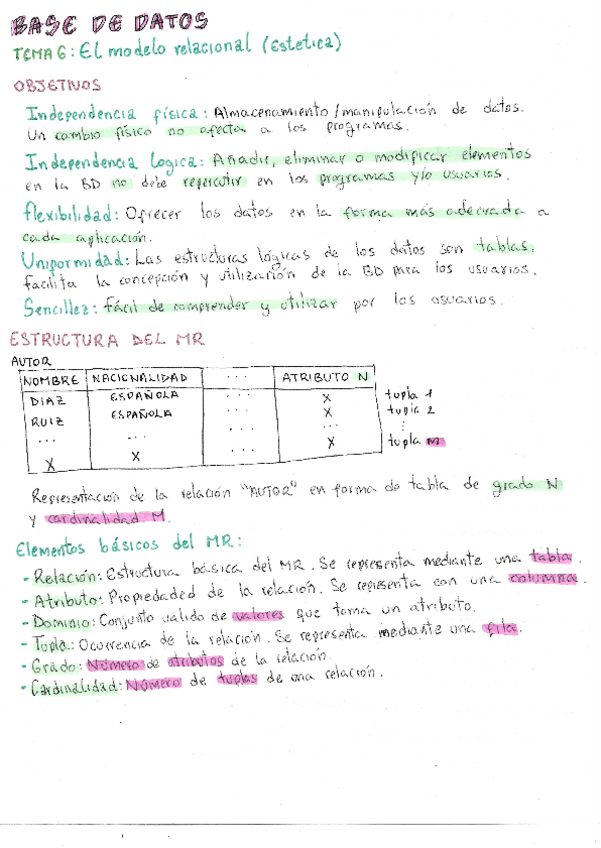 BASE DE DATOS
TEMA 6: El modelo relacional (Estetica)
OBJETIVOS
Independencia física: Almacenamiento/manipulación de datos.
Un cambio físico no afecta a los programas.
Independencia Logica: Añadir, eliminar o modificar elementos
en la BD no debe repercutir en los programas y/o usuarios.
flexibilidad: Ofrecer los datos en la forma más adecuada a
cada aplicación.
Uniformidad: Las estructuras lógicas de los datos son tablas,
facilita la concepción y utilización de la BD para los usuarios.
Sencillez: fácil de comprender y utilizar por los usuarios.
ESTRUCTURA DEL MR
AUTOR
NOMBRE NACIONALIDAD ... ATRIBUTO N
DIAZ ESPAÑOLA ... X tupla 1
RUIZ ESPAÑOLA ... X tupla 2
... ... ... ⋮
X X ... X tupla m
Representación de la relación "AUTOR" en forma de tabla de grado N
y cardinalidad M.
Elementos básicos del MR:
- Relación: Estructura básica del MR. Se representa mediante una tabla.
- Atributo: Propiedaded de la relación. Se representa con una columna.
- Dominio: Conjunto valido de valores que toma un atributo.
- Tupla: Ocurrencia de la relación. Se representa mediante una fila.
- Grado: Número de atributos de la relación.
- Cardinalidad: Número de tuplas de una relación.